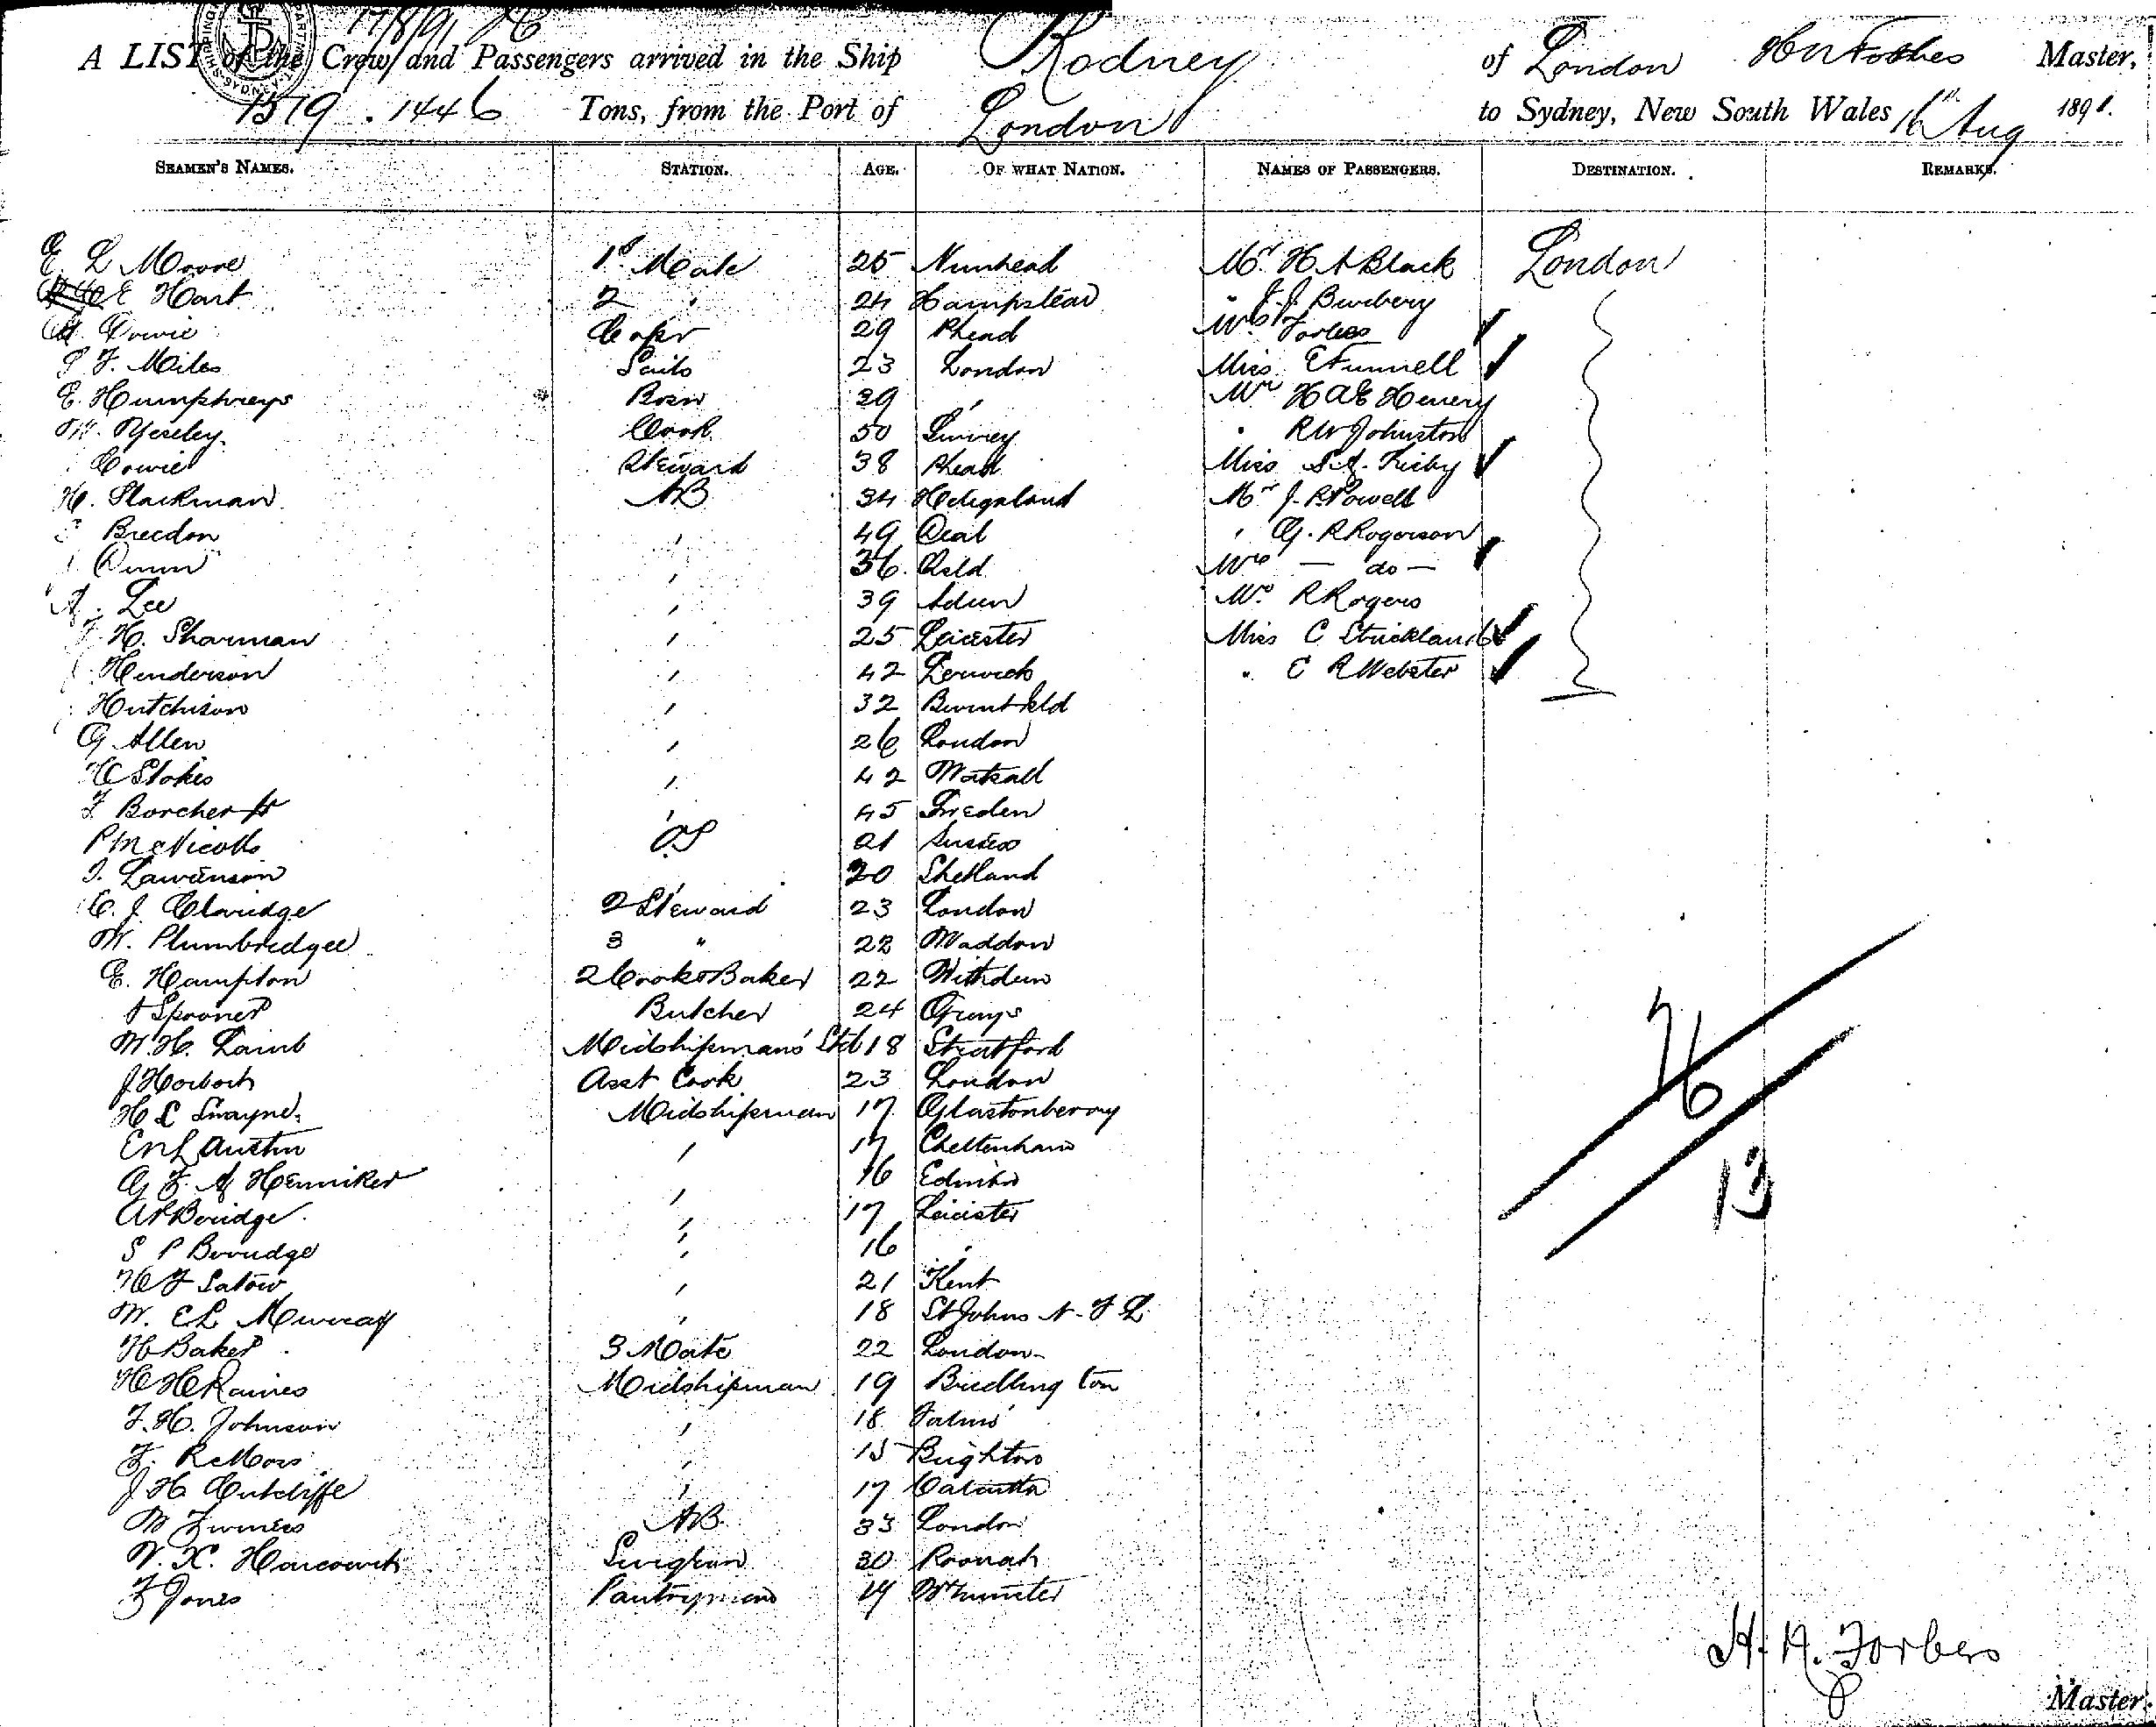 17/8/91
A LIST of the Crew and Passengers arrived in the Ship Rodney of London Master,
1519 . 1446 Tons, from the Port of London to Sydney, New South Wales 16th Aug 1891.
SEAMEN'S NAMES. STATION. AGE. OF WHAT NATION. NAMES OF PASSENGERS. DESTINATION. REMARKS.
E. L Moore 1st Mate 25 Nunhead Mr. H A Black London
E Hart 2 " 24 Hampstead " J. J. Burbery
Cowie Carpr 29 Phead Mrs Forbes
F. Miles Sails 23 London Miss E Funnell
E. Humphreys Bosn 39 " Mr H A E Henery
W. Yeseley Cook 50 Surrey " R W Johnston
Cowie Steward 38 Phead Miss Kirby
H. Stackman AB 34 Heligoland Mr J. R Powell
Breedon " 49 Deal " G. R Rogerson
Dunn " 36 Qsld Mrs — do —
A. Lee " 39 Mr. R Rogers
H. Sharman " 25 Leicester Miss C Strickland
Henderson " 42 Lerwick " E R Webster
Hutchison " 32 Burntisld
G. Allen " 26 London
H C Stokes " 42 Walsall
F Borchert " 45 Sweden
P McNicolls OS 21 Sussex
J. Lawrenson " 20 Shetland
C. J. Claridge 2 Steward 23 London
W. Plumbridge 3 " 22 Waddon
E. Hampton 2 Cook & Baker 22
A Spooner Butcher 24 Grays
W. H. Lamb Midshipmans' Std 18 Stratford
J Horboch Asst Cook 23 London
H L Swayne. Midshipman 17 Glastonberry
Austin " 17 Cheltenham
G F. A Henniker " 16 Edinbro
A P Beridge. " 17 Leicester
S P Beridge " 16 "
H F Satow " 21 Kent
W. E L Murray " 18 St Johns N. F L.
H Baker 3 Mate 22 London
H H Raines Midshipman 19 Bridlington
F. H. Johnson " 18
F. R Moss " 15 Brighton
J H Cutcliffe " 17 Calcutta
W AB 33 London
W. K. Harcourt Surgeon 30 Poonah
F Jones Pantryman 19 Wminster
76
13
H. N. Forbes
Master.